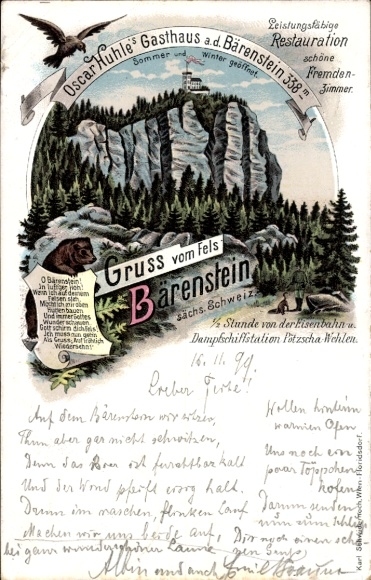 Oscar Huhle's Gasthaus a.d. Bärenstein 338 m
Sommer und Winter geöffnet.
Leistungsfähige
Restauration
schöne
Fremden-
zimmer.
O Bärenstein!
In luft'ger Höh!
Wenn ich auf deinem
Felsen steh,
Möcht ich mir oben
Hütten bauen
Und immer Gottes
Wunder schauen.
Gott schirm dich Fels!
Ich muss nun gehn
Als Gruss: Auf fröhlich
Wiedersehn!
Gruss vom Fels
Bärenstein
sächs. Schweiz.
1/2 Stunde von der Eisenbahn u.
Dampfschiffstation Pötzscha-Wehlen.
16.11.99.
Lieber
Auf dem Bärenstein wir sitzen,
Thun aber gar nicht schwitzen,
Denn das Bier ist furchtbar kalt
Und der Wind pfeift eisig halt.
Dann im raschen, flinken Lauf
Machen wir uns auf,
bei ganz wunderschöner Laune
Wollen hinterm
warmen Ofen
Uns noch ein
paar Töppchen
holen
Darum senden
wir zum Schluss
Dir noch einen
Albin und auch Emil
Karl Schwidernoch, Wien-Floridsdorf.